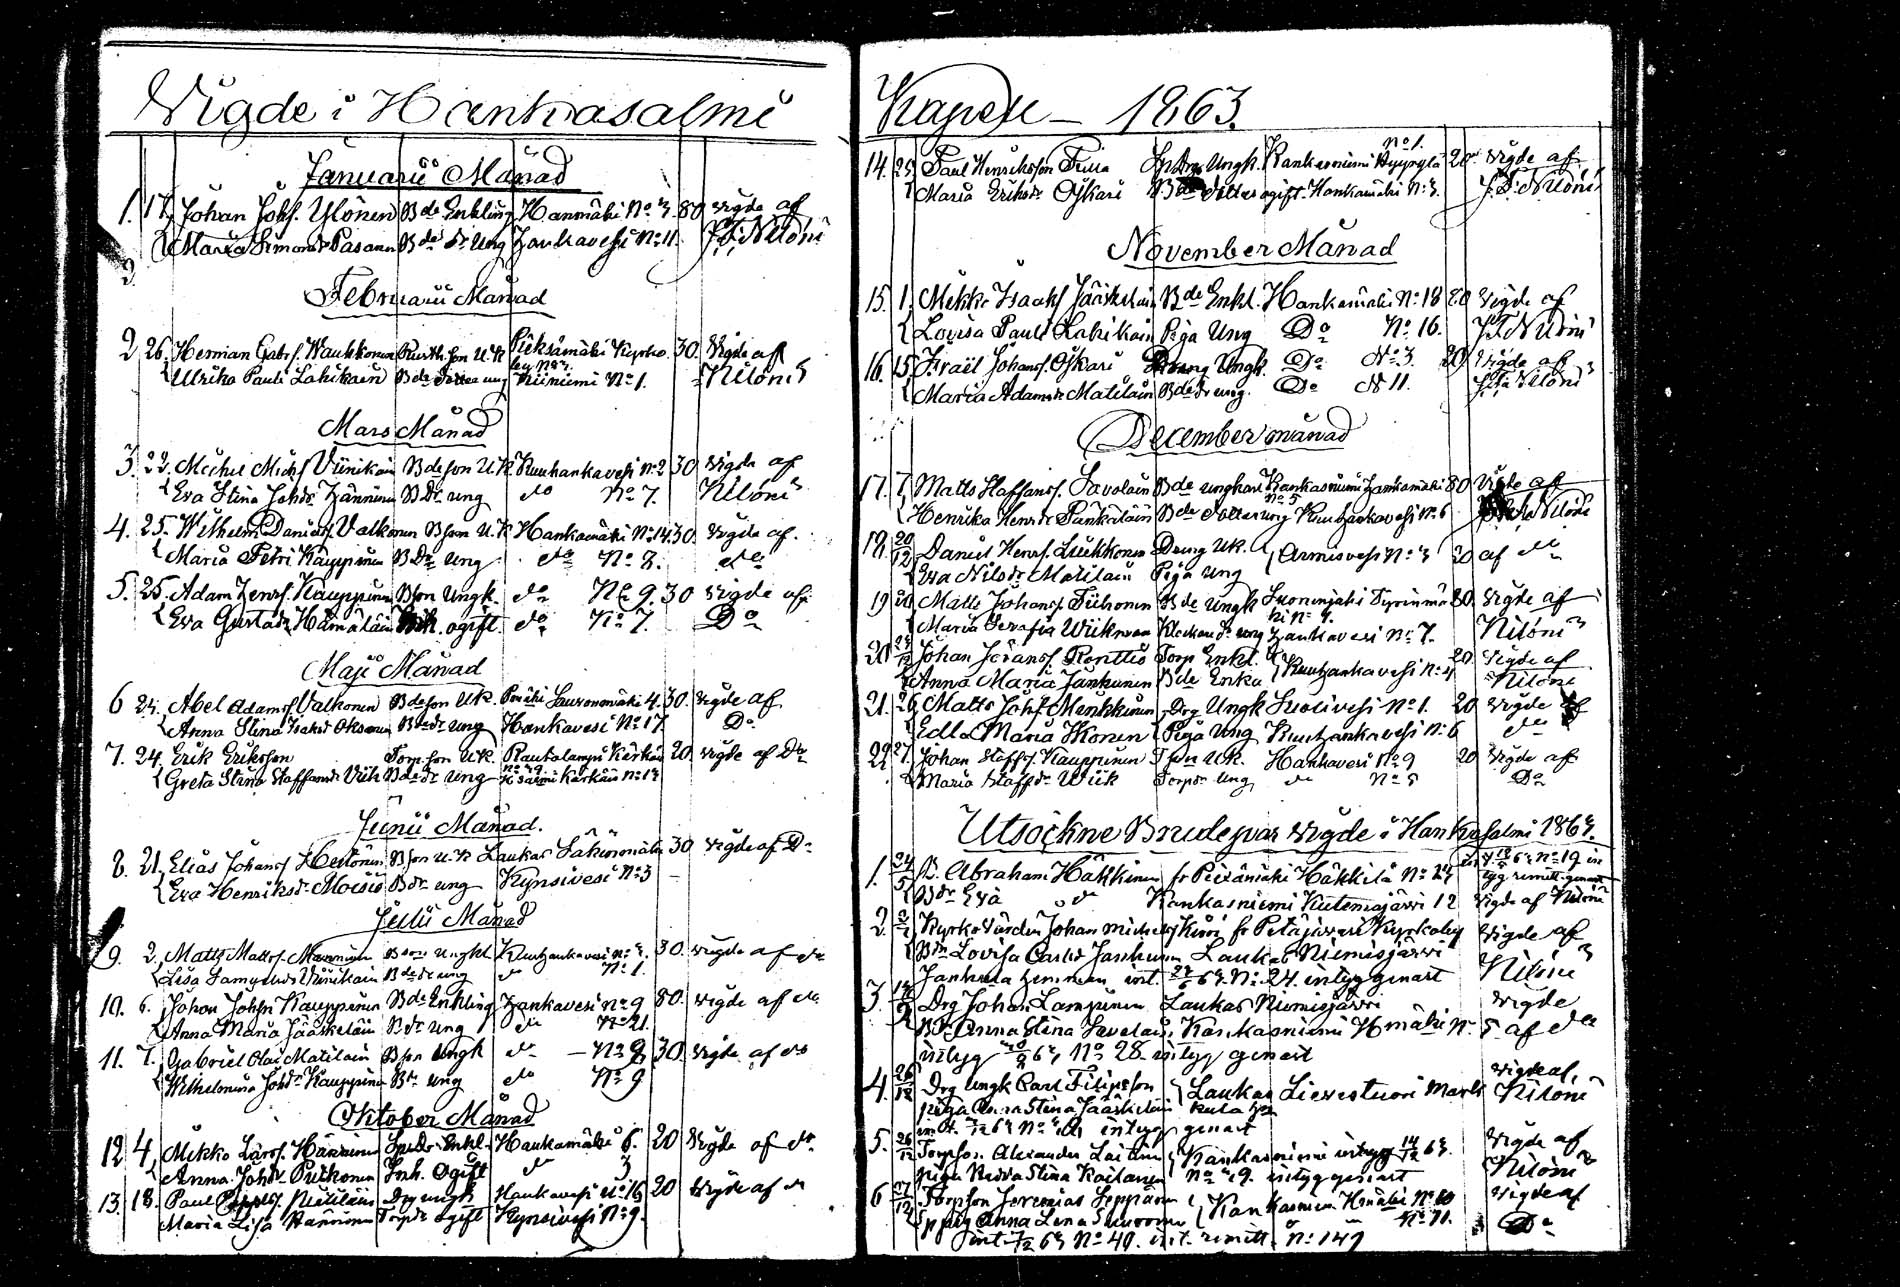 Vigde i Hankasalmi
Januarii Månad
1. 17. Johan Johs. Ylönen Bde Enkling Hanmäki No 3. 80 vigde af
Maria Simonsdr Pasanen Bde dr Ung Hankavesi No 11. J.F. Niloni
2
Februarii Månad
2 26. Herman Gabrs. Waukkonen Rusth. son U.K. Pieksämäki Kyrko 30. Vigde af
by No 3.
Ulrika Pauls Lahikain Bde dotter ung Kiiniemi No 1. Niloni
Mars Månad
3. 22. Michel Michs Viinikain Bde son U.K. Kuuhankavesi No 2 30 vigde af
Eva Stina Johsdr Hänninen B Dr ung do No 7. Niloni
4. 25. Wilhelm Daniels Valkonen B son U.K. Hankamäki No 14. 30. vigde af.
Maria Petri Kauppinen B Dr Ung do No 8. do
5. 25. Adam Henrs. Kauppinen Bson Ungk. do No 9. 30 vigde af
Eva Gustasdr Hämäläin ogift do No 7. Do
Maji Månad
6 24. Abel Adams Valkonen Bde son U.K. 4. 30. vigde af
Anna Stina Isaksdr Oksanen Bde dr Ung Hankavesi No 17. Do
7. 24. Erik Eriksson Torp. son U.K. Rautalampi Kärkäi 20. vigde af Do
No 49.
Greta Stina Staffansdr Viik Bde dr Ung K. Salmi Kärkäis No 13
Junii Månad.
8. 21. Elias Johans Heitönen B son U.K. Laukas 30 vigde af Do
Eva Henriksdr Moisio B dr ung Kynsivesi No 3
Julii Månad
9. 2. Matts Matts. Manninen Bson Ungkl Kuuhankavesi No 3. 30. vigde af do
Lisa Samuelsdr Viinikain Bde dr ung do No 1.
10. 6. Johan Johsn Kauppinen Bde Enkling Hankavesi No 9 80. vigde af do
Anna Maria Jääskeläin B dr Ung do No 21.
11. 7. Gabriel Olai Matilain B son Ungk do No 8 30. vigde af do
Wilhelmina Johsdr Kauppinen B dr Ung do No 9
Oktober Månad
12 4. Mikko Larss. Hänninen Enkl. Hankamäki 6. 20 Vigde af do
Anna Johsdr Puikonen Inh. Ogift do 3
13. 18. Paul Matilain Drg ungk Hankavesi No 16 20 Vigde af do
Maria Lisa Hänninen Torpdr ogift Kynsivesi No 9.
Kapell 1863.
No 1.
14. 25. Paul Henriksson Ungk. Kankasniemi Hyyrylä 20 vigde af
Maria Eriksdr Ojkari Bde dotter ogift. Hankamäki No 3. J.F. Niloni
November Månad
15. 1. Mikko Isaaks Jääskeläin Bde Enkl. Hankamäki No 18 80 Vigde af
Lovisa Pauls Lahikain Piga Ung Do No 16. J.F. Niloni
16. 15. Israël Johans. Ojkari Dreng Ungk. Do No 3. 20 vigde af
Maria Adamsdr Matilain Bde dr ung. Do N 11. J.F. Niloni
December månad
17. 7. Matts Staffans. Savolain Bde ungkarl Kankasniemi Hankamäki 80 Vigde af
No 5
Henrika Henrsdr Bde dotter ung Kuuhankavesi No 6 Niloni
18. 20/12 Daniel Henrs. Liukkonen Dreng UK. Armisvesi No 3 20 af do
Eva Nilsdr Matilain Piga Ung
19 20 Matts Johans. Tiihonen Bde Ungk 80. vigde af
ki No 4.
Maria Serafia Wiiknman Klockare dr ung Hankavesi No 7. Niloni
20 Johan Johans. Ronttis Torp Enkl. Kuuhankavesi No 4 20. vigde af
Anna Maria Jankunen Bde Enka Niloni
21. 26 Matts Johs. Minkkinen Drg Ungk Suolivesi No 1. 20 vigde af
Edla Maria Ikonen Piga Ung Kuuhankavesi No 6 do
22 27. Johan Staffs. Kauppinen T son U.K. Hankavesi No 9 20 vigde af
Maria Staffsdr Wiik Torpdr Ung do No 5 Do
Utsöckne Brudepar vigde i Hankasalmi 1863.
1. 24/5 B. Abraham Häkkinen fr Pieksämäki Häkkilä No 23 63 No 19 in
tyg remitt. genast
Bdr Eva do Kankasniemi Kutemajärvi 12 vigde af Niloni
2. Kyrkovärden Johan Michels Kiiri fr Petäjävesi Kyrkoby vigde af
Bdr Lovisa Carlsdr Janhunen Laukas Niemisjärvi Niloni
Janhula hemman int. 63. No 24. intyg genast
3. Drg Johan Lampinen Laukas Niemisjärvi vigde
Bdr Anna Stina Savolain, Kankasniemi Hmäki No 5 af do
intyg 63 No 28. intyg genast
4. 26/12 Drg Ungk Carl Filipsson Laukas Lievestuori Mark vigde af
piga Anna Stina Jääskeläin kula Niloni
63 No intyg genast
5. 26/12 Torpson Alexander Laitinen Kankasniemi intyg 14/12 63. Vigde af
piga Stina No 19. intyg genast Niloni
6 27/12 Torpson Jeremias Seppänen Kankasniemi Hmäki No 10 vigde af
piga Anna Lena No 71. Do
int. 63 No 40. int. remitt. No 147